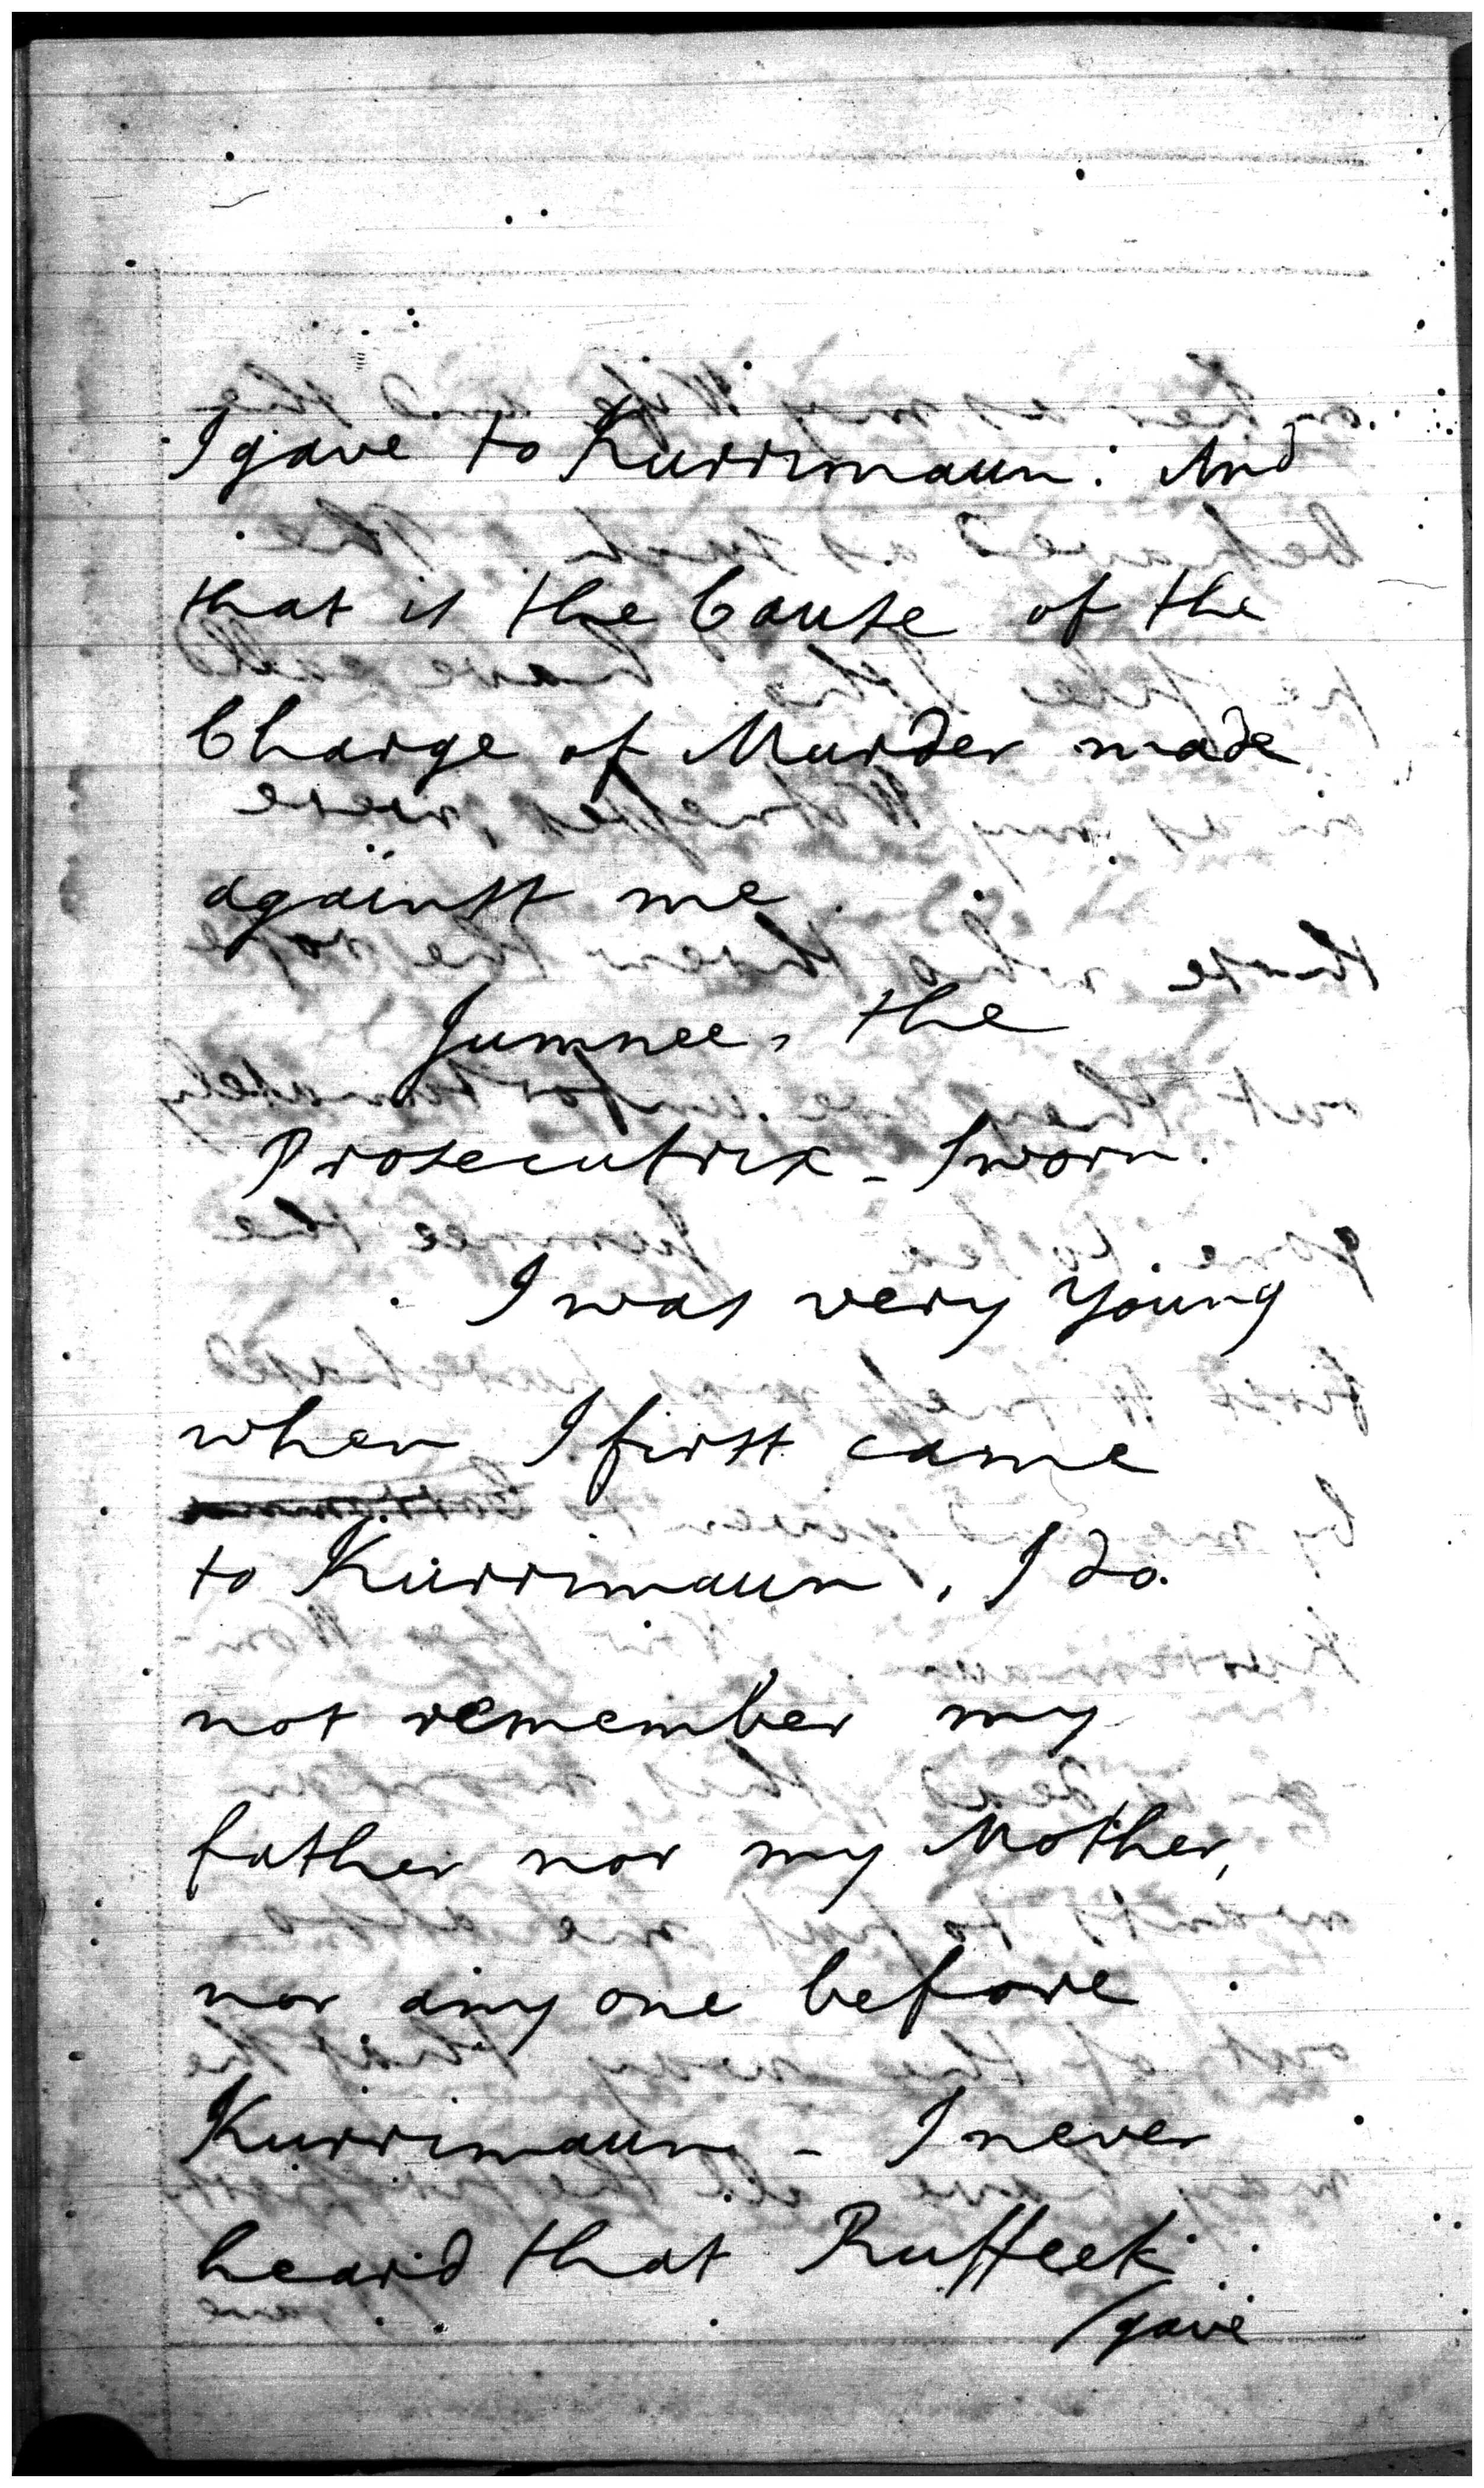 I gave to Kurrimaun: And
that is the Cause of the
Charge of Murder made
against me.
Jumnee, the
Prosecutrix - Sworn.
I was very young
when I first came
to Kurrimaun, I do
not remember my
father nor my Mother,
nor any one before
Kurrimaun - I never
heard that Ruffeek
/gave